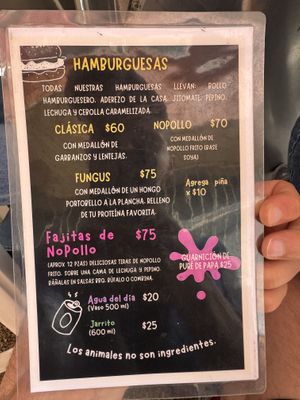 HAMBURGUESAS
TODAS NUESTRAS HAMBURGUESAS LLEVAN: BOLLO
HAMBURGUESERO, ADEREZO DE LA CASA, JITOMATE, PEPINO,
LECHUGA Y CEBOLLA CARAMELIZADA.
CLÁSICA $60
CON MEDALLÓN DE
GARBANZOS Y LENTEJAS.
NOPOLLO $70
CON MEDALLÓN DE
NOPOLLO FRITO (BASE
SOYA)
FUNGUS $75
CON MEDALLÓN DE UN HONGO
PORTOBELLO A LA PLANCHA, RELLENO
DE TU PROTEÍNA FAVORITA.
Agrega piña
x $10
Fajitas de
NoPollo $75
(APROX. 12 PZAS) DELICIOSAS TIRAS DE NOPOLLO
FRITO, SOBRE UNA CAMA DE LECHUGA Y PEPINO.
BÁÑALAS EN SALSAS BBQ, BÚFALO O COMBINA.
GUARNICIÓN DE
PURÉ DE PAPA $25
Agua del día $20
(Vaso 500 ml)
Jarrito $25
(600 ml)
Los animales no son ingredientes.